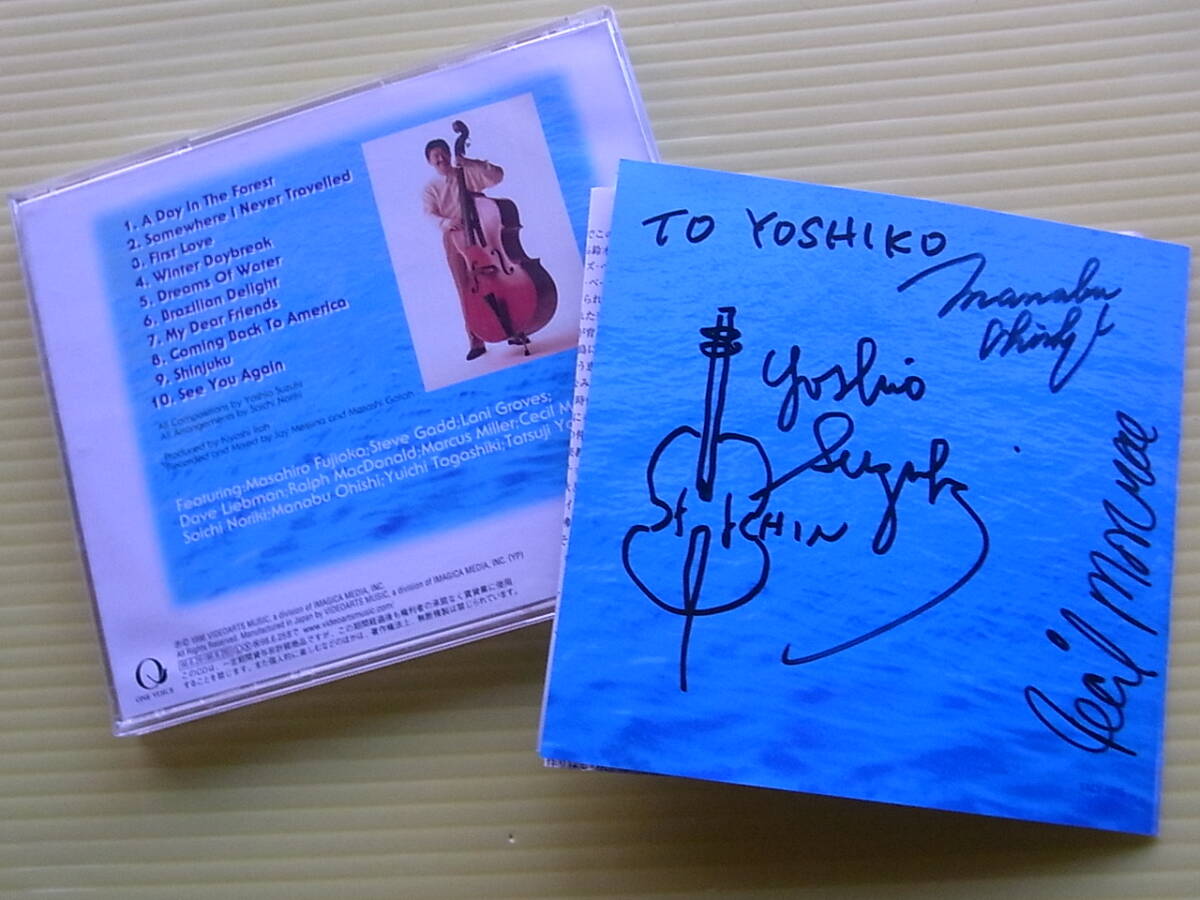 1. A Day In The Forest
2. Somewhere I Never Travelled
3. First Love
4. Winter Daybreak
5. Dreams Of Water
6. Brazilian Delight
7. My Dear Friends
8. Coming Back To America
9. Shinjuku
10. See You Again
All Compositions by Yoshio Suzuki
All Arrangements by Soichi Noriki
Produced by Kiyoshi Itoh
Recorded and Mixed by Jay Messina and Masashi Gotoh
Featuring:Masahiro Fujioka;Steve Gadd;Lani Groves;
Dave Liebman;Ralph MacDonald;Marcus Miller;Cecil M
Soichi Noriki;Manabu Ohishi;Yuichi Togashiki;Tatsuji Yo
VIDEOARTS MUSIC, a division of IMAGICA MEDIA, INC.
All Rights Reserved. Manufactured in Japan by VIDEOARTS MUSIC, a division of IMAGICA MEDIA, INC. (YP)
www.videoartsmusic.com/ この期間経過後も権利者の承諾なく賃貸業に使用
このCDは、一定期間貸与非許諾商品ですが、
することを禁じます。また個人的に楽しむなどのほかは、著作権法上、無断複製は禁じられています。
ONE VOICE
TO YOSHIKO
Manabu
Ohishi
Yoshio
Suzuki
CHIN
Cecil Monroe